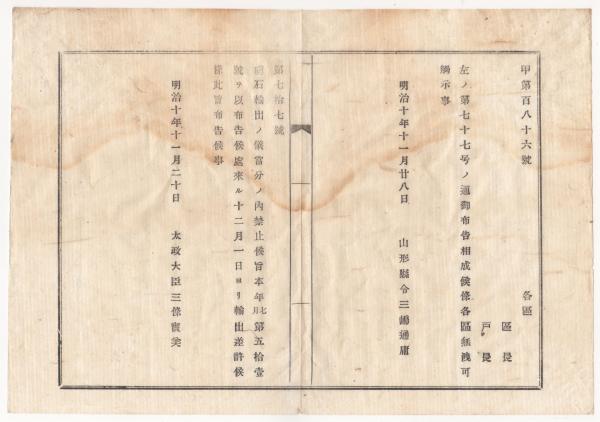 甲第百八十六號
各區
區長
戸長
左ノ第七十七号ノ通御布告相成候條各區無洩可
觸示事
明治十年十一月廿八日　山形縣令三嶋通庸
第七拾七號
硝石輸出ノ儀當分ノ內禁止候旨本年第五拾壹
號ヲ以布告候處來ル十二月一日ヨリ輸出差許候
條此旨布告候事
明治十年十一月二十日　太政大臣三條實美